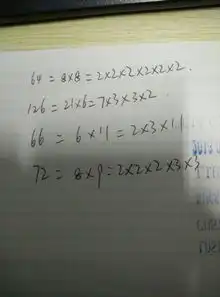 64 = 8×8 = 2×2×2×2×2×2.
126 = 21×6 = 7×3×3×2.
66 = 6×11 = 2×3×11
72 = 8×9 = 2×2×2×3×3